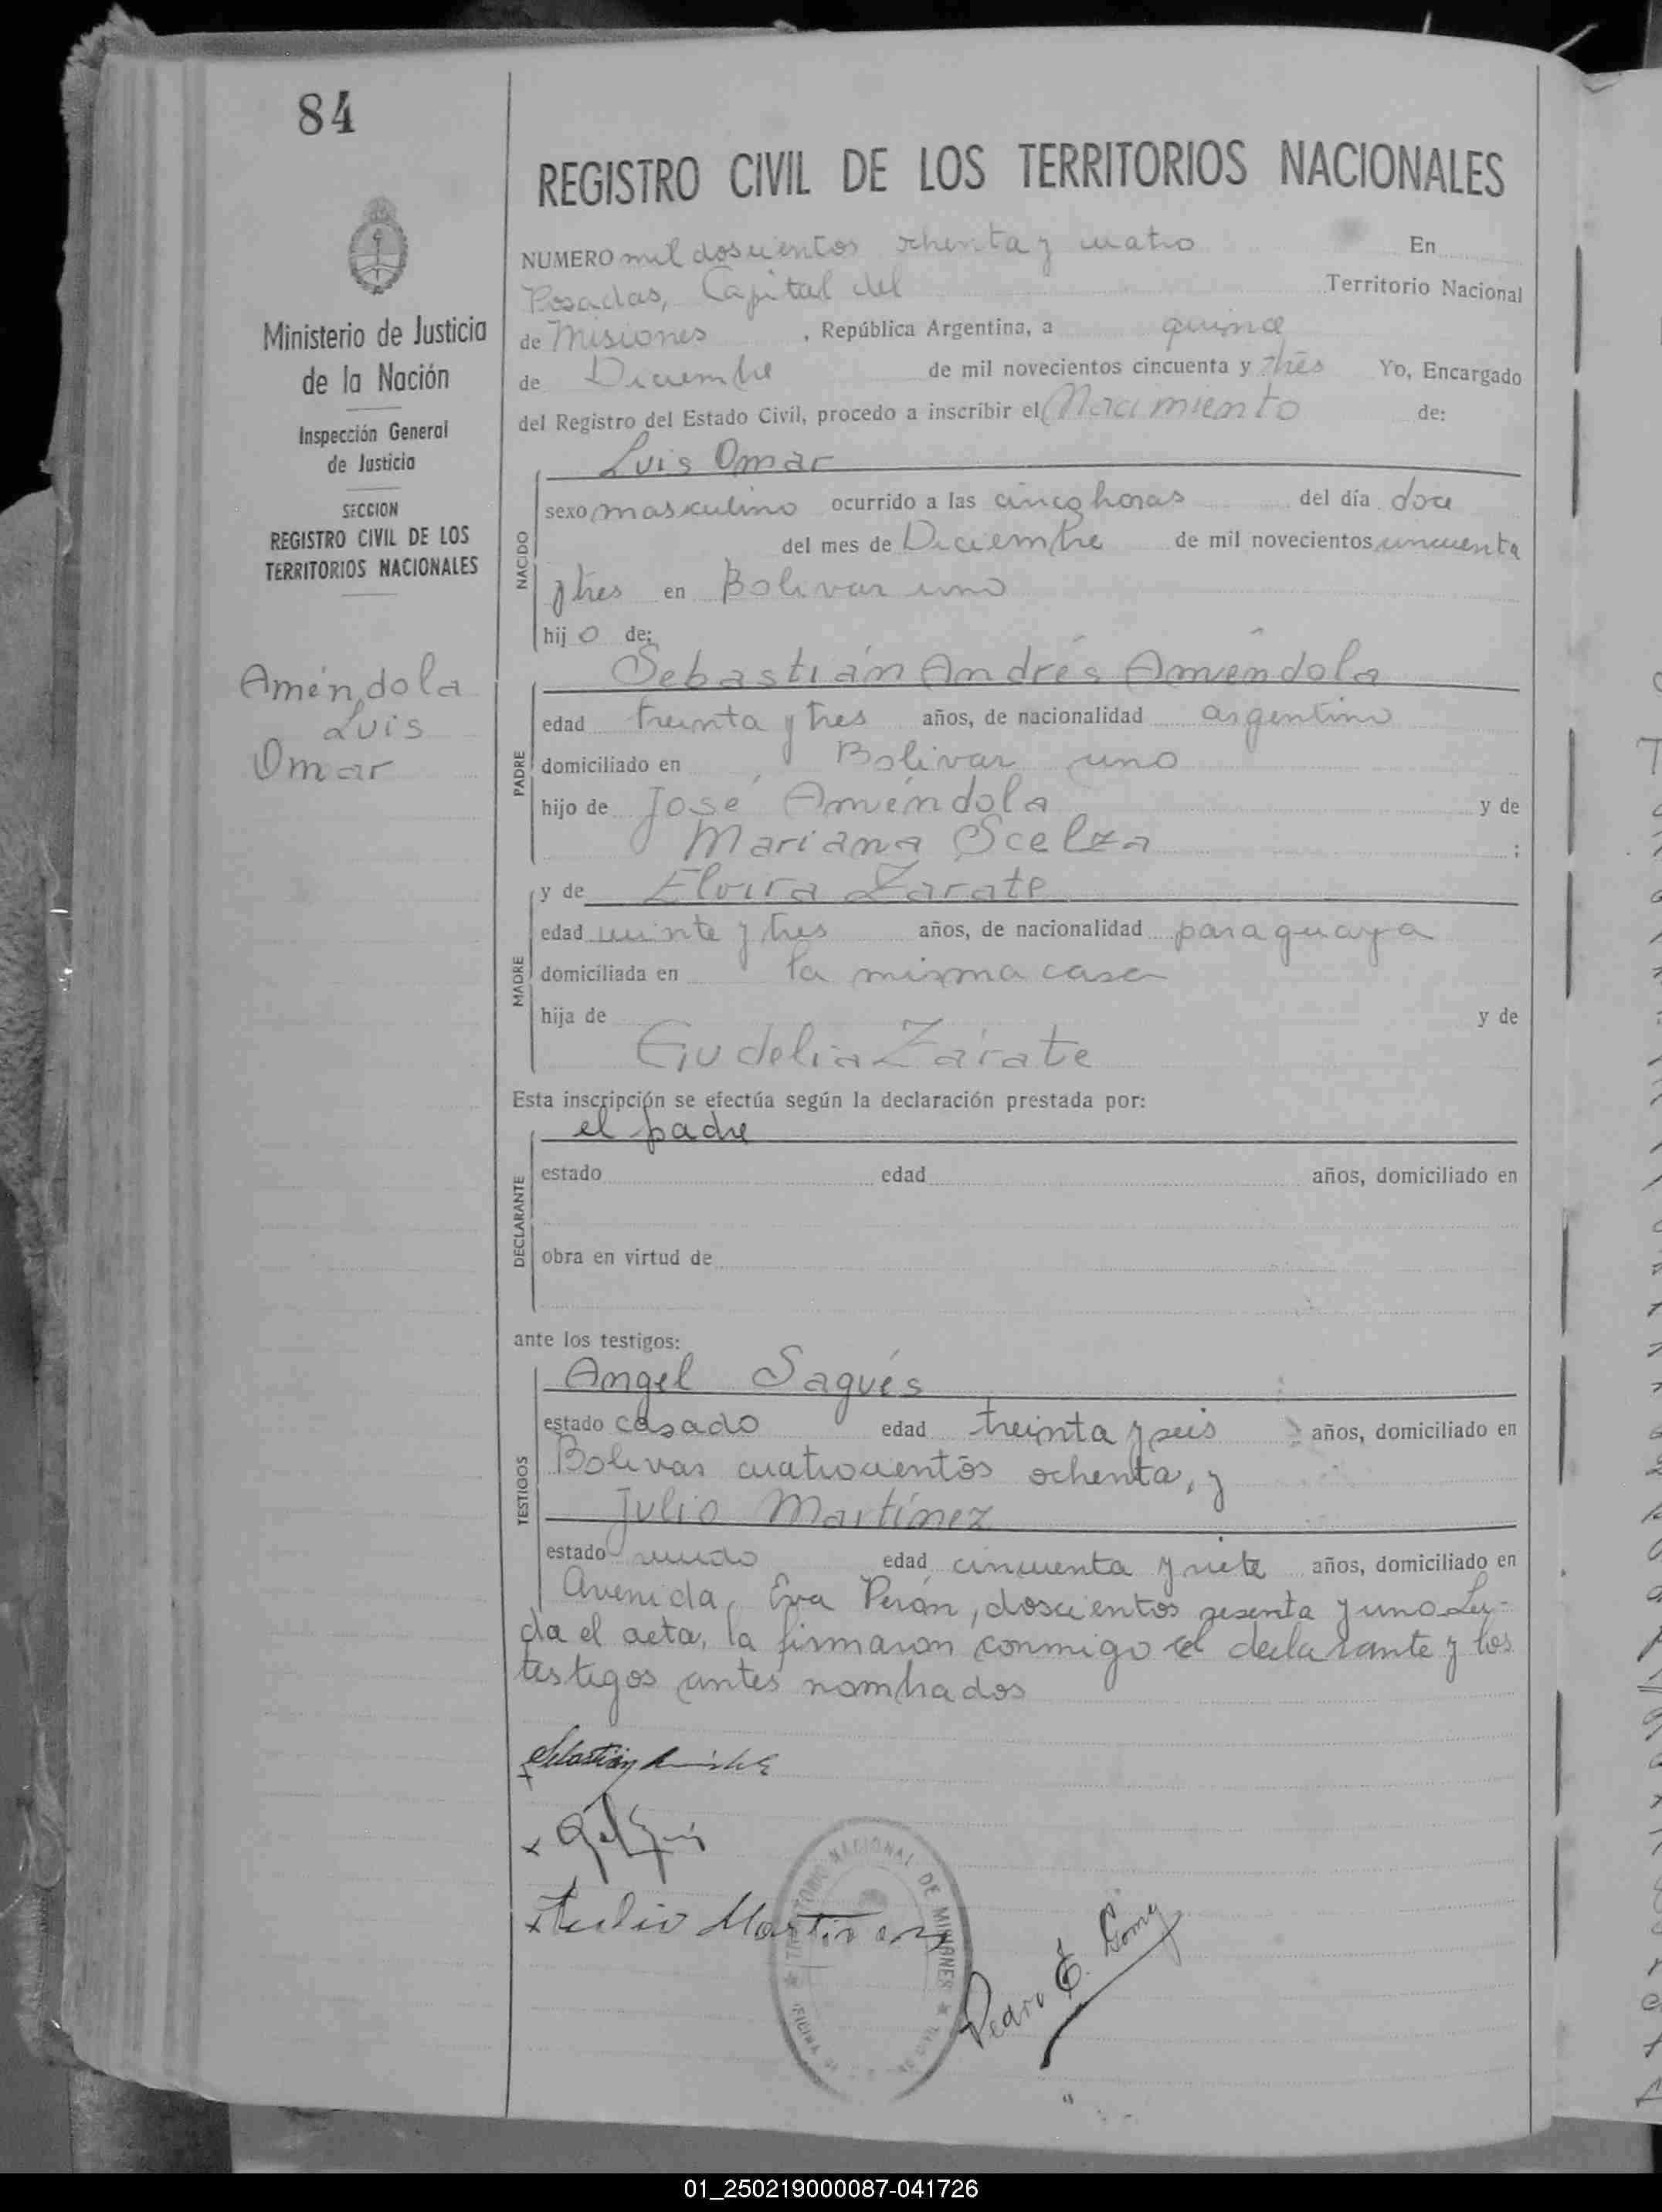 84
REGISTRO CIVIL DE LOS TERRITORIOS NACIONALES
NUMERO mil doscientos ochenta y cuatro En
Posadas, Capital del Territorio Nacional
de Misiones , República Argentina, a quince
de Diciembre de mil novecientos cincuenta y tres Yo, Encargado
del Registro del Estado Civil, procedo a inscribir el Nacimiento de:
Ministerio de Justicia
de la Nación
Inspección General
de Justicia
SECCION
REGISTRO CIVIL DE LOS
TERRITORIOS NACIONALES
Améndola
Luis
Omar
NACIDO
Luis Omar
sexo masculino ocurrido a las cinco horas del día doce
del mes de Diciembre de mil novecientos cincuenta
y tres en Bolivar uno
hij o de:
PADRE
Sebastián Andrés Améndola
edad treinta y tres años, de nacionalidad argentino
domiciliado en Bolivar uno
hijo de José Améndola y de
Mariana Scelza ;
MADRE
y de Elvira Zarate
edad veinte y tres años, de nacionalidad paraguaya
domiciliada en la misma casa
hija de y de
Gudelia Zárate
Esta inscripción se efectúa según la declaración prestada por:
DECLARANTE
el padre
estado edad años, domiciliado en
obra en virtud de
ante los testigos:
TESTIGOS
Angel Sagués
estado casado edad treinta y seis años, domiciliado en
Bolivar cuatrocientos ochenta, y
Julio Martínez
estado viudo edad cincuenta y siete años, domiciliado en
Avenida Eva Perón, doscientos sesenta y uno. Lei-
da el acta, la firmaron conmigo el declarante y los
testigos antes nombrados
Sebastián
x
x Julio Martinez
TERRITORIO NACIONAL DE MISIONES
Pedro E. Gomez
01_250219000087-041726